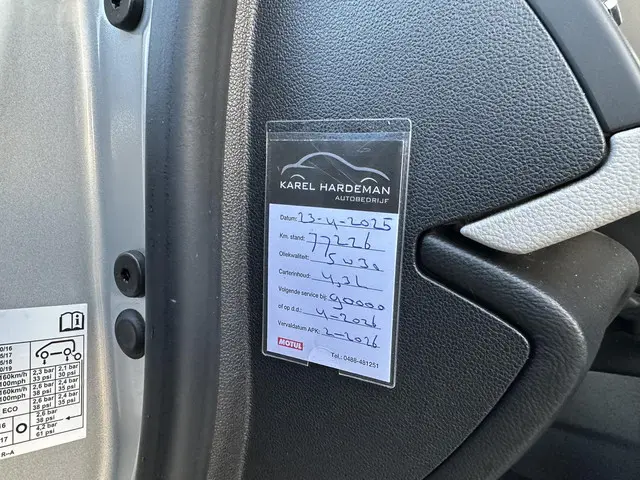 KAREL HARDEMAN
AUTOBEDRIJF
Datum: 23-4-2025
Km. stand: 77226
Oliekwaliteit: 5w30
Carterinhoud: 4,3L
Volgende service bij: 90000
of op d.d.: 4-2026
Vervaldatum APK: 2-2026
MOTUL
Tel.: 0486-481251
0/16
5/17
5/18
0/19
160km/h
100mph
2,3 bar
33 psi
2,1 bar
30 psi
160km/h
100mph
2,6 bar
38 psi
2,4 bar
35 psi
ECO
2,6 bar
38 psi
2,4 bar
35 psi
16
17
2,6 bar
38 psi
4,2 bar
61 psi
R-A